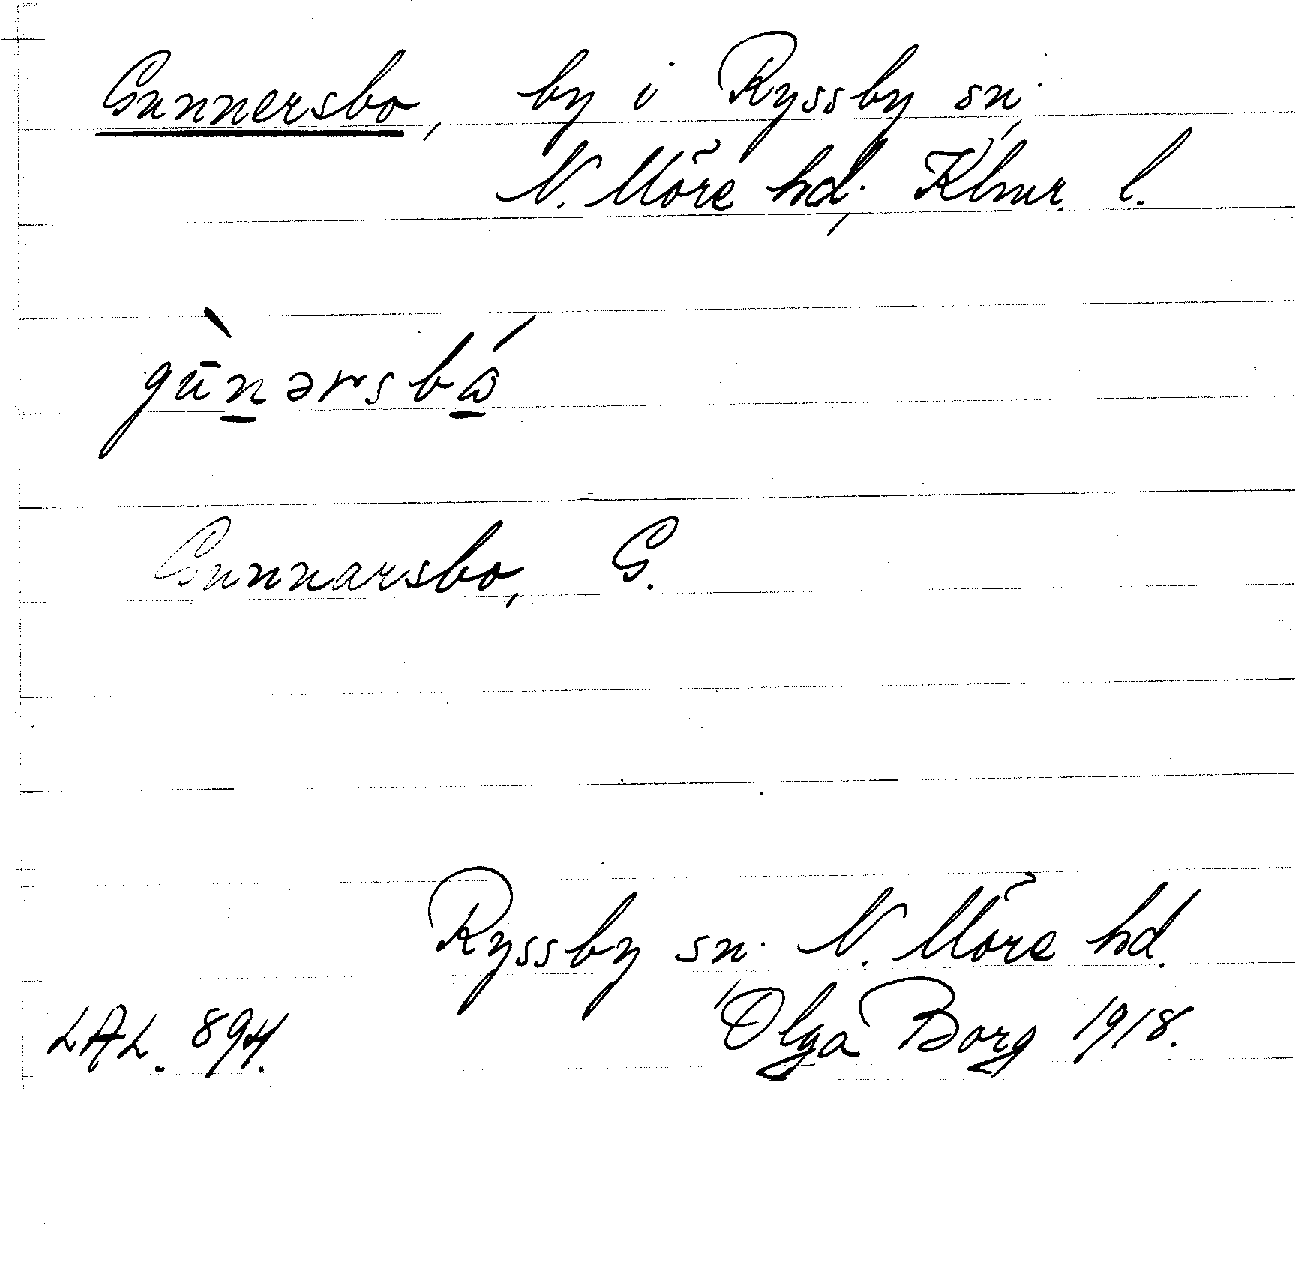 Gunnersbo, by i Ryssby sn,
N. Möre hd, Klmr. l.
gùnərsbɷ́
Gunnarsbo, G.
Ryssby sn, N. Möre hd.
LAL. 894. Olga Borg 1918.